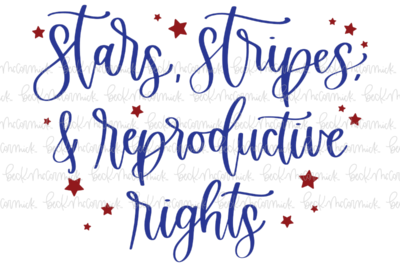 stars, stripes,
& reproductive
rights